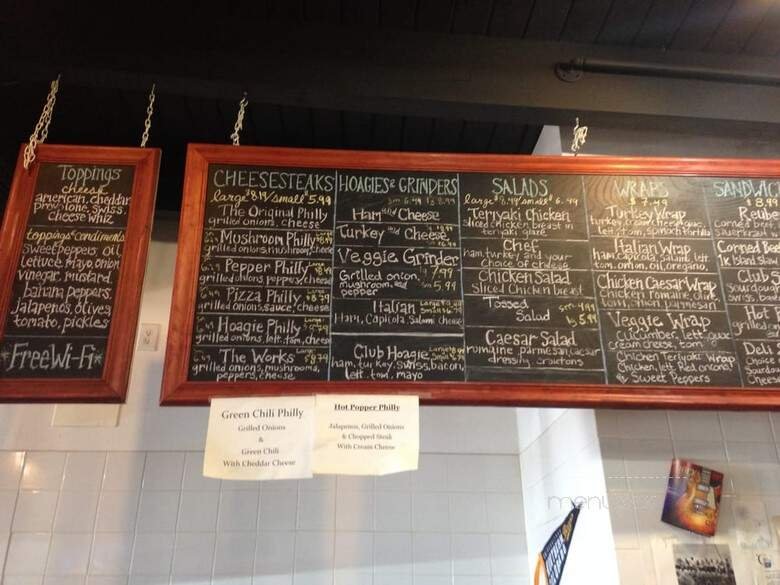 Toppings
cheese
american, cheddar
provolone, swiss,
cheese whiz
toppings & condiments
sweet peppers, oil
lettuce, mayo, onion
vinegar, mustard,
banana peppers,
Jalapenos, olives,
tomato, pickles
*Free Wi-Fi*
CHEESESTEAKS
large $8.19/small $5.99
The Original Philly
grilled onions, cheese
Mushroom Philly
grilled onions, mushroom, cheese
Pepper Philly
grilled onions, peppers, cheese
Pizza Philly
grilled onions, sauce, cheese
Hoagie Philly
grilled onions, lett, tom, cheese
The Works
grilled onions, mushrooms,
peppers, cheese
HOAGIES & GRINDERS
Ham and Cheese
Turkey and Cheese
Veggie Grinder
Grilled onion, lg 7.99
mushroom, red sm 5.99
pepper
Italian
Ham, Capicola, Salami, cheese
Club Hoagie
ham, turkey, swiss, bacon,
lett, tom, mayo
SALADS
large $8.49/small $6.49
Teriyaki Chicken
sliced chicken breast in
teriyaki glaze
Chef
ham, turkey and your
choice of cheese
Chicken Salad
Sliced Chicken breast
Tossed
Salad
lg 5.99
Caesar Salad
romaine, parmesan, caesar
dressing, croutons
WRAPS
$7.49
Turkey Wrap
turkey, cream cheese, guac,
lett, tom, spinach tortilla
Italian Wrap
ham, capicola, salami, lett,
tom, onion, oil, oregano,
Chicken Caesar Wrap
Chicken, romaine, olive,
Veggie Wrap
Cucumber, lett, guac
cream cheese, tom
Chicken Teriyaki Wrap
Chicken, lett, Red onions
Sweet Peppers
SANDWIC
$8.99
Reube
corned beef,
Corned Bee
1k Island, slaw
Club S
Sourdough
swiss, bac
Hot
grilled
Deli
Choice
Sourdou
Cheese
Green Chili Philly
Grilled Onions
&
Green Chili
With Cheddar Cheese
Hot Popper Philly
Jalapenos, Grilled Onions
& Chopped Steak
With Cream Cheese